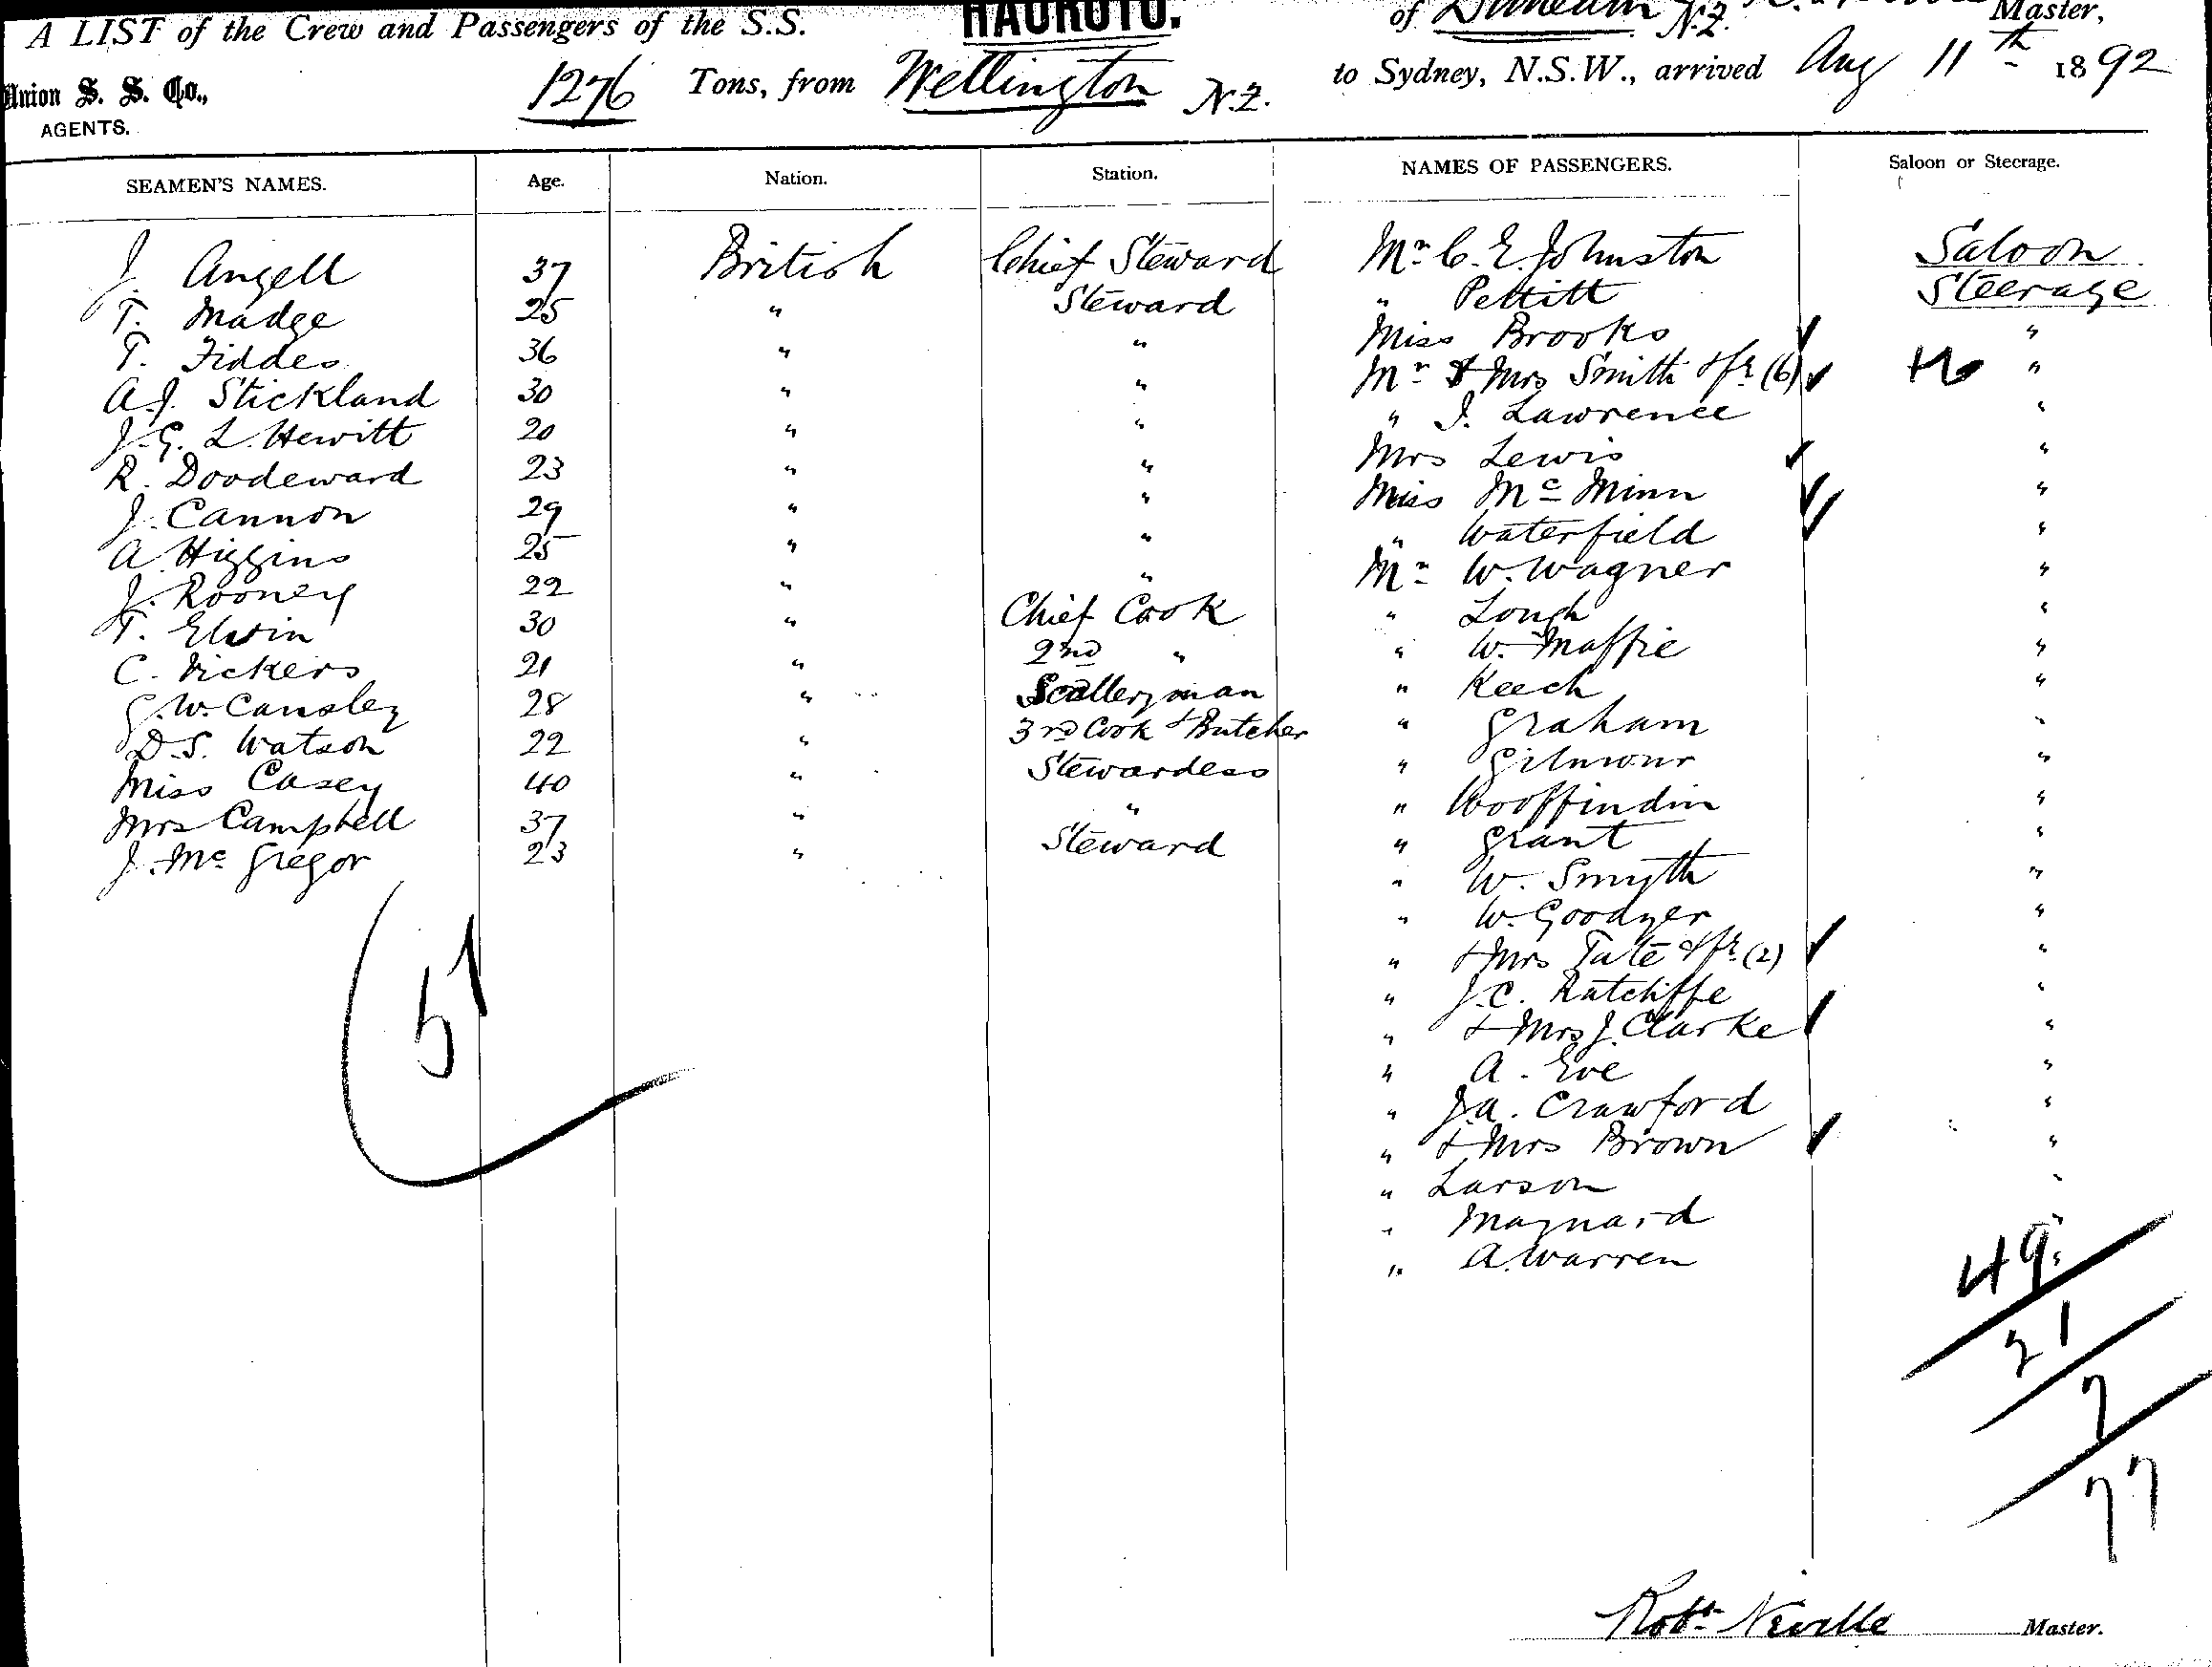 A LIST of the Crew and Passengers of the S.S. HAUROTO. of Dunedin N.Z. Master,
Union S. S. Co., 1276 Tons, from Wellington N.Z. to Sydney, N.S.W., arrived Aug 11th 1892
AGENTS.
SEAMEN'S NAMES. Age. Nation. Station. NAMES OF PASSENGERS. Saloon or Steerage.
J. Angell 37 British Chief Steward Mr C. E. Johnston Saloon
T. Madge 25 " Steward " Pettitt Steerage
T. Fiddes 36 " " Miss Brooks "
A.J. Stickland 30 " " Mr & Mrs Smith & fy (6) "
J.G. L. Hewitt 20 " " " J. Lawrence "
R. Doodeward 23 " " Mrs Lewis "
J. Cannon 29 " " Miss Mc Minn "
A. Higgins 25 " " " Waterfield "
J. Rooney 22 " " Mr W. Wagner "
T. Elwin 30 " Chief Cook " Lough "
C. Vickers 21 " 2nd " " W. Maffie "
G.W. Cansley 28 " Scalleryman " Keech "
D.S. Watson 22 " 3rd Cook & Butcher " Graham "
Miss Casey 40 " Stewardess " Gilmour "
Mrs Campbell 37 " " " Wooffindin "
J. Mc Gregor 23 " Steward " Grant "
" W. Smyth "
" W. Goodyer "
" & Mrs Tate & fy (2) "
" J.C. Ratcliffe "
51 " & Mrs J. Clarke "
" A. Eve "
" J.A. Crawford "
" & Mrs Brown "
" Larson "
" Maynard "
" A. Warren "
49
21
7
77
Robt Neville Master.